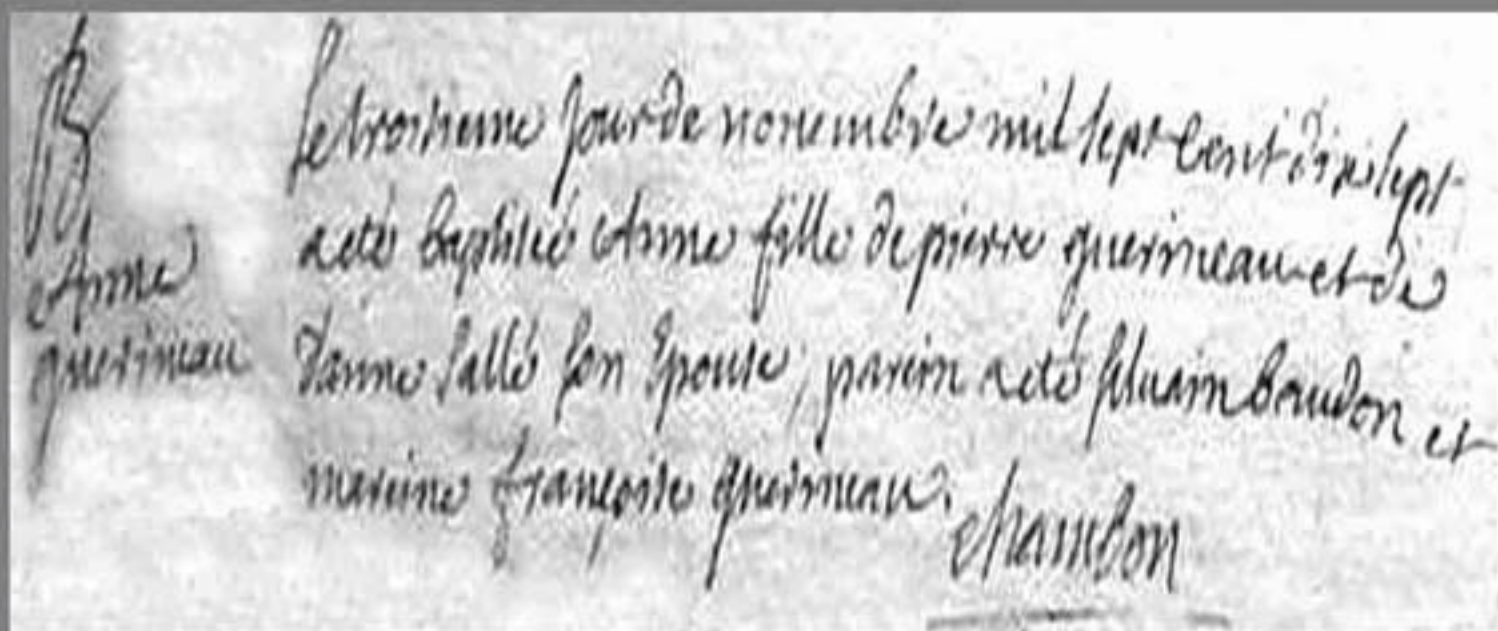 B
Anne
guerineau
Le troisieme jour de novembre mil sept cent dixsept
a eté baptisée Anne fille de pierre guerineau et de
d'anne Sallé son Epouse, parein a eté silvain baudon et
mareine françoise guerineau.
Chambon